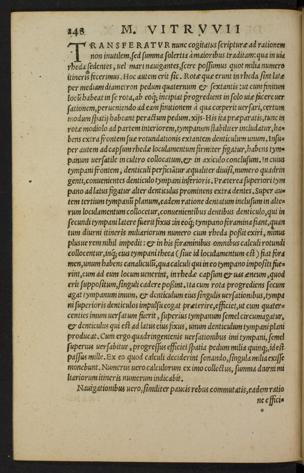 248 M. VITRVVII
TRANSFERATVR nunc cogitatus scripturæ ad rationem
non inutilem, sed summa solertia à maioribus traditam: qua in uia
rheda sedentes, uel mari nauigantes, scire possumus quot milia numero
itineris fecerimus. Hoc autem erit sic. Rotæ quæ erunt in rheda sint latæ
per mediam diametron pedum quaternûm &
locū habeat in se rota, ab eoq́; incipiat progrediens in solo uiæ facere uer
sationem, perueniendo ad eam finitionem à qua cœperit uersari, certum
modum spatij habeat peractum pedum xijs. His ita præparatis, tunc in
rotæ modiolo ad partem interiorem, tympanum stabiliter includatur, ha
bens extra frontem suæ rotundationis extantem denticulum unum. Insu
per autem ad capsum rhedæ loculamentum firmiter figatur, habens tym
panum uersatile in cultro collocatum, & in axiculo conclusum. in cuius
tympani frontem, denticuli perficiantur æqualiter diuisi, numero quadrin
genti, conuenientes denticulo tympani inferioris. Præterea superiori tym
pano ad latus figatur alter denticulus prominens extra dentes. Super au
tem tertium tympanum planum, eadem ratione dentatum inclusum in alte-
rum loculamentum collocatur, conuenientibus dentibus denticulo, qui in
secundi tympani latere fuerit fixus in eoq́; tympano foramina fiant, quan
tum diurni itineris miliariorum numero cum rheda possit exiri, minus
plusue rem nihil impedit: & in his foraminibus omnibus calculi rotundi
collocentur, inq́; eius tympani theca (siue id loculamentum est) fiat fora
men, unum habens canaliculū, qua calculi qui in eo tympano impositi fue
rint, cum ad eum locum uenerint, in rhedæ capsum & uas æneum, quod
erit suppositum, singuli cadere possint. ita cum rota progrediens secum
agat tympanum imum, & denticulum eius singulis uersationibus, tympa
ni superioris denticulos impulsu cogat præterire, efficiet, ut cum quater-
centies imum uersatum fuerit, superius tympanum semel circumagatur,
& denticulus qui est ad latus eius fixus, unum denticulum tympani plani
producat. Cum ergo quadringentenis uersationibus imi tympani, semel
superius uersabitur, progressus efficiet spatia pedum milia quinq́;, id est
passus mille. Ex eo quod calculi deciderint sonando, singula milia exisse
monebunt. Numerus uero calculorum ex imo collectus, summa diurni mi
liariorum itineris numerum indicabit.
Nauigationibus uero, similiter paucis rebus commutatis, eadem ratio
ne effici-